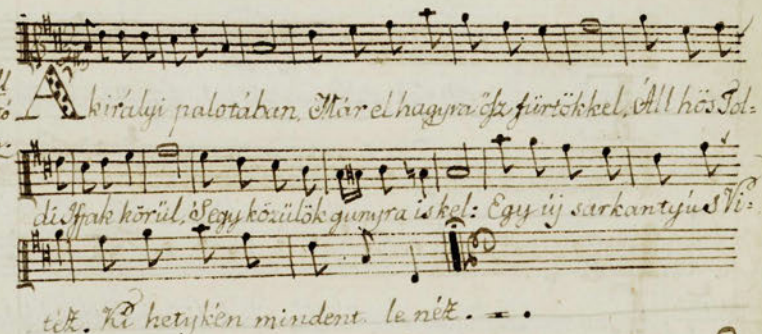 A királyi palotában, Már el hagyra ősz fürtökkel, Áll hös Tol=
di Iffak körül, S egy közülök gunyra is kel: Egy új sarkantyús Vi=
téz. Ki hetykén mindent le néz.